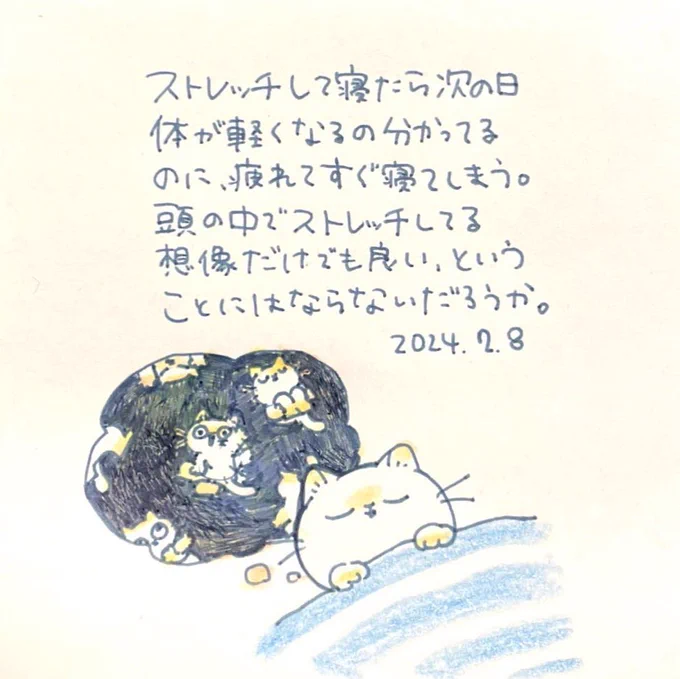 ストレッチして寝たら次の日
体が軽くなるの分かってる
のに、疲れてすぐ寝てしまう。
頭の中でストレッチしてる
想像だけでも良い、という
ことにはならないだろうか。
2024.2.8